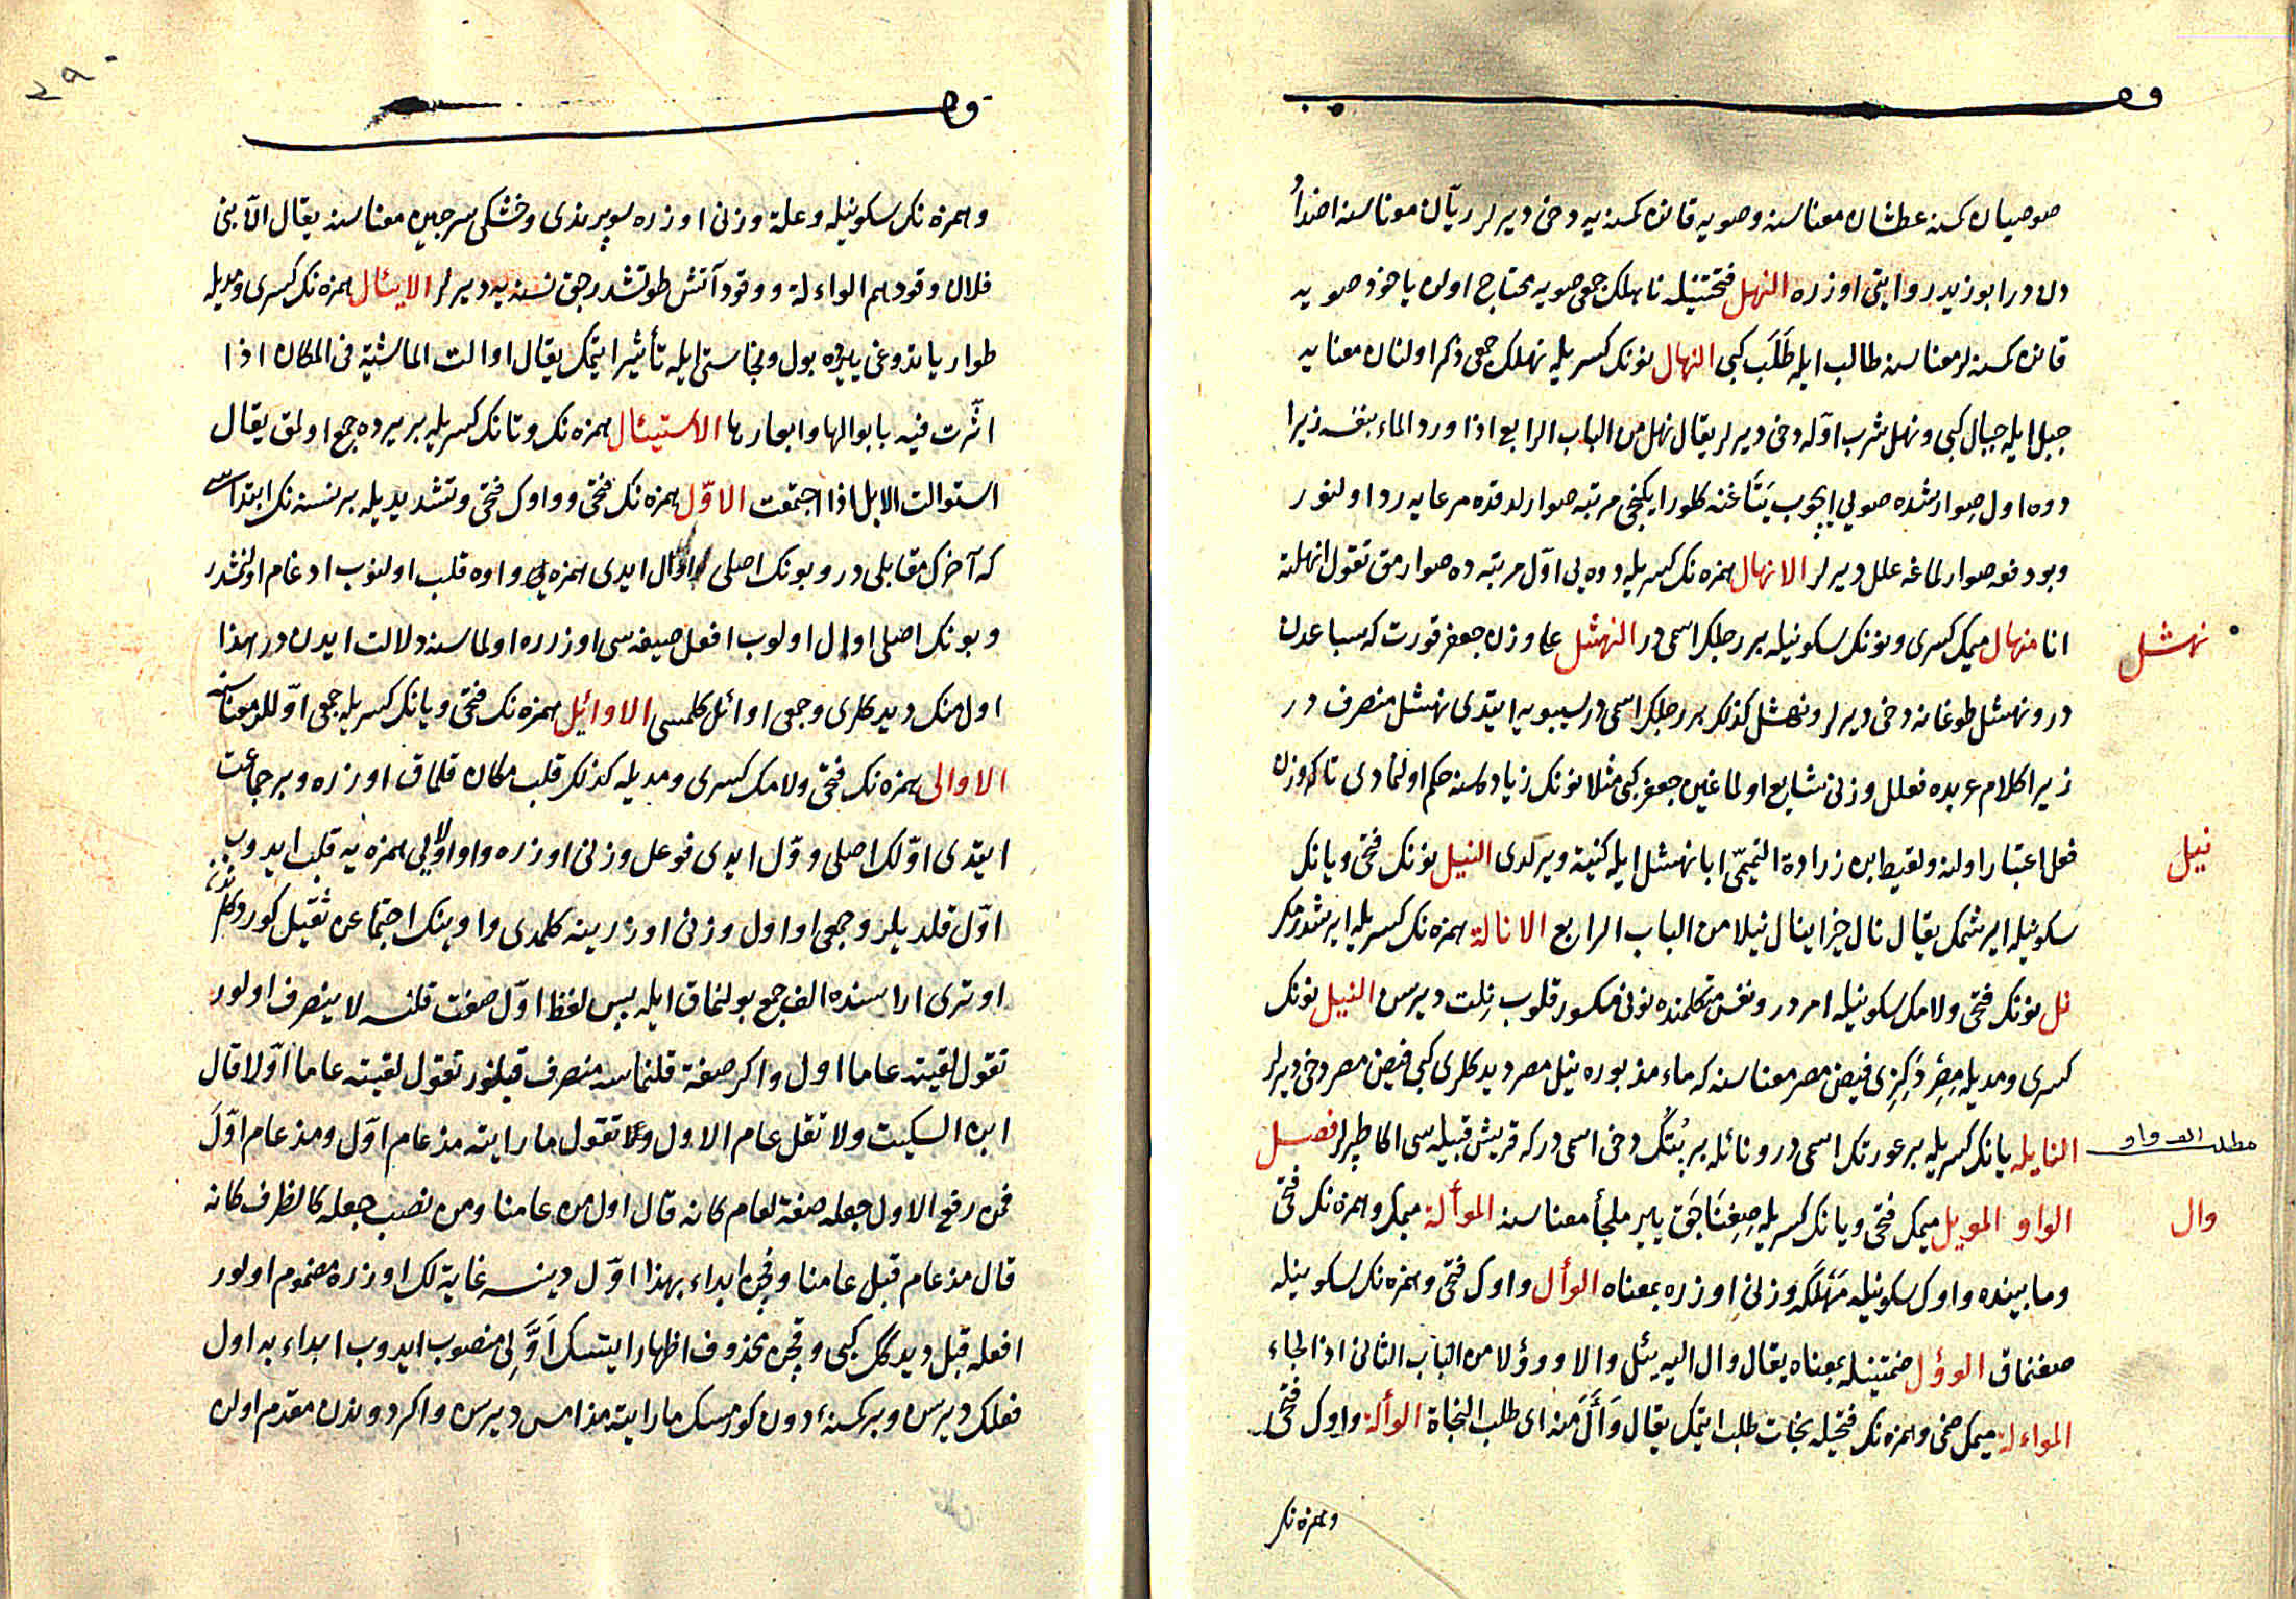 صوصیان کسنه عطشان معناسنه وصویه قانن کسنه یه دخی دیرلر ریّان معناسنه اضدا
دن در ابو زید روایتی اوزره النهل فتحتینله ناهلك جمعی صویه محتاج اولن یاخود صویه
قانن کسنه لر معناسنه طالب ایله طَلَب کبی النهال نونك کسریله نهلك جمعی ذکر اولنان معنایه
جبل ایله جبال کبی ونهل شرب اوّله دخی دیرلر یقال نهل من الباب الرابع اذا ورد الماء بنفسه زیرا
دوه اول صوارشده صویی ایچوب یتاغنه کلور ایکنجی مرتبه صوارلدقده مرعایه رد اولنور
وبو دفعه صوارلماغه علل دیرلر الانهال همزه نك کسریله دوه یی اوّل مرتبه ده صوارمق تقول انهلته
نهشل
انا منهال میمك کسری ونونك سکونیله بر رجلك اسمی در النهشل علی وزن جعفر قورت که سباعدن
در ونهشل طوغانه دخی دیرلر ونهشل کذلك بر رجلك اسمی در سیبویه ایتدی نهشل منصرف در
زیرا کلام عربده فعلل وزنی شایع اولماغین جعفر کبی مثلا نونك زیادلکنه حکم اولنمادی تاکه وزن
نیل
فعل اعتبار اولنه ولقیط ابن زرارة التمیمیّ ابا نهشل ایله کنیة ویرلدی النیل نونك فتحی ویانك
سکونیله ایرشمك یقال نال خیرا ینال نیلا من الباب الرابع الانالة همزه نك کسریله ایرشدرمك
نل نونك فتحی ولامك سکونیله امر در ونفس متکلمنده نونی مکسور قلوب نِلت دیرسن النیل نونك
کسری ومدیله مِصِرْ دَکِزی فیض مصر معناسنه که ماء مذبوره نیل مصر دیدکلری کبی فیض مصر دخی دیرلر
مطلب الف واو
النایله یانك کسریله بر عورتك اسمی در ونائله بر بُتُك دخی اسمی در که قریش قبیله سی اکا طپرلر فصل
وال
الواو المویل میمك فتحی ویانك کسریله صِغِنَاجَق ییر ملجأ معناسنه الموألة میمك وهمزه نك فتحی
ومابینده واوك سکونیله مَهْلَکَه وزنی اوزره بمعناه الوأل واوك فتحی وهمزه نك سکونیله
صغنماق الوؤل ضمتینله بمعناه یقال وال الیه یئل والا وووؤلا من الباب الثانی اذا لجاء
المواءلة میمك ضمی وهمزه نك فتحیله نجات طلب ایتمك یقال وَأَلَ منه ای طلب النجاة الوألة واوك فتحی
وهمزه نك
وهمزه نك سکونیله وعلة وزنی اوزره سوپرندی وخشکی سرجین معناسنه یقال الآ بنی
فلان وقودهم الواءلة ووقود آتش طوتشدرجق نسنه یه دیرلر الایئال همزه نك کسری ومدیله
طوار یاتدوغی ییرده بول ونجاستی ایله تأثیر ایتمك یقال اوالت الماشیة فی المکان اذا
اثّرت فیه بابوالها وابعارها الاستیئال همزه نك وتانك کسریله بر یرده جمع اولمق یقال
استوالت الابل اذا اجتمعت الاوّل همزه نك فتحی وواوك فتحی وتشدیدیله بر نسنه نك ابتداسی
که آخرك مقابلی در وبونك اصلی اوأل ایدی همزه یی واوه قلب اولنوب ادغام اولنمشدر
وبونك اصلی اوأل اولوب افعل صیغه سی اوزره اولماسنه دلالت ایدن در هذا
اول منك دیدکلری وجمعی اوائل کلمسی الاوائل همزه نك فتحی ویانك کسریله جمعی اوّللر معناسنه
الاوالی همزه نك فتحی ولامك کسری ومدیله کذلك قلب مکان قلماق اوزره وبر جماعت
ایتدی اوّلك اصلی ووّل ایدی فوعل وزنی اوزره واو اولایی همزه یه قلب ایدوب
اوّل قلدیلر وجمعی اواول وزنی اوزرینه کلمدی واوینك اجتماعن ثقیل کوردکلرندن
اوتری اراسنده الف جمع بولنماق ایله پس لفظ اوّل صفت قلنسه لا ینصرف اولور
تقول لقیته عاما اول واکر صفة قلنماسه منصرف قیلنور تقول لقیته عاما اوّلا قال
ابن السکیت ولا تقل عام الاول وتقول ما رایته مذ عام اوّل ومذ عام اوّلَ
فمن رفع الاول جعله صفة لعام کانه قال اول من عامنا ومن نصب جعله کالظرف کانه
قال مذ عام قبل عامنا وقچن ابداء بهذا اوّل دینسه غایة لك اوزره مضموم اولور
افعله قبل دیدکك کبی وقچن محذوف اظهار ایتسك اَوَّلی منصوب ایدوب ابداء به اول
فعلك دیرسن وبر کسنه دون کورمسك ما رایته مذ امس دیرسن واکر دونذن مقدم اولن